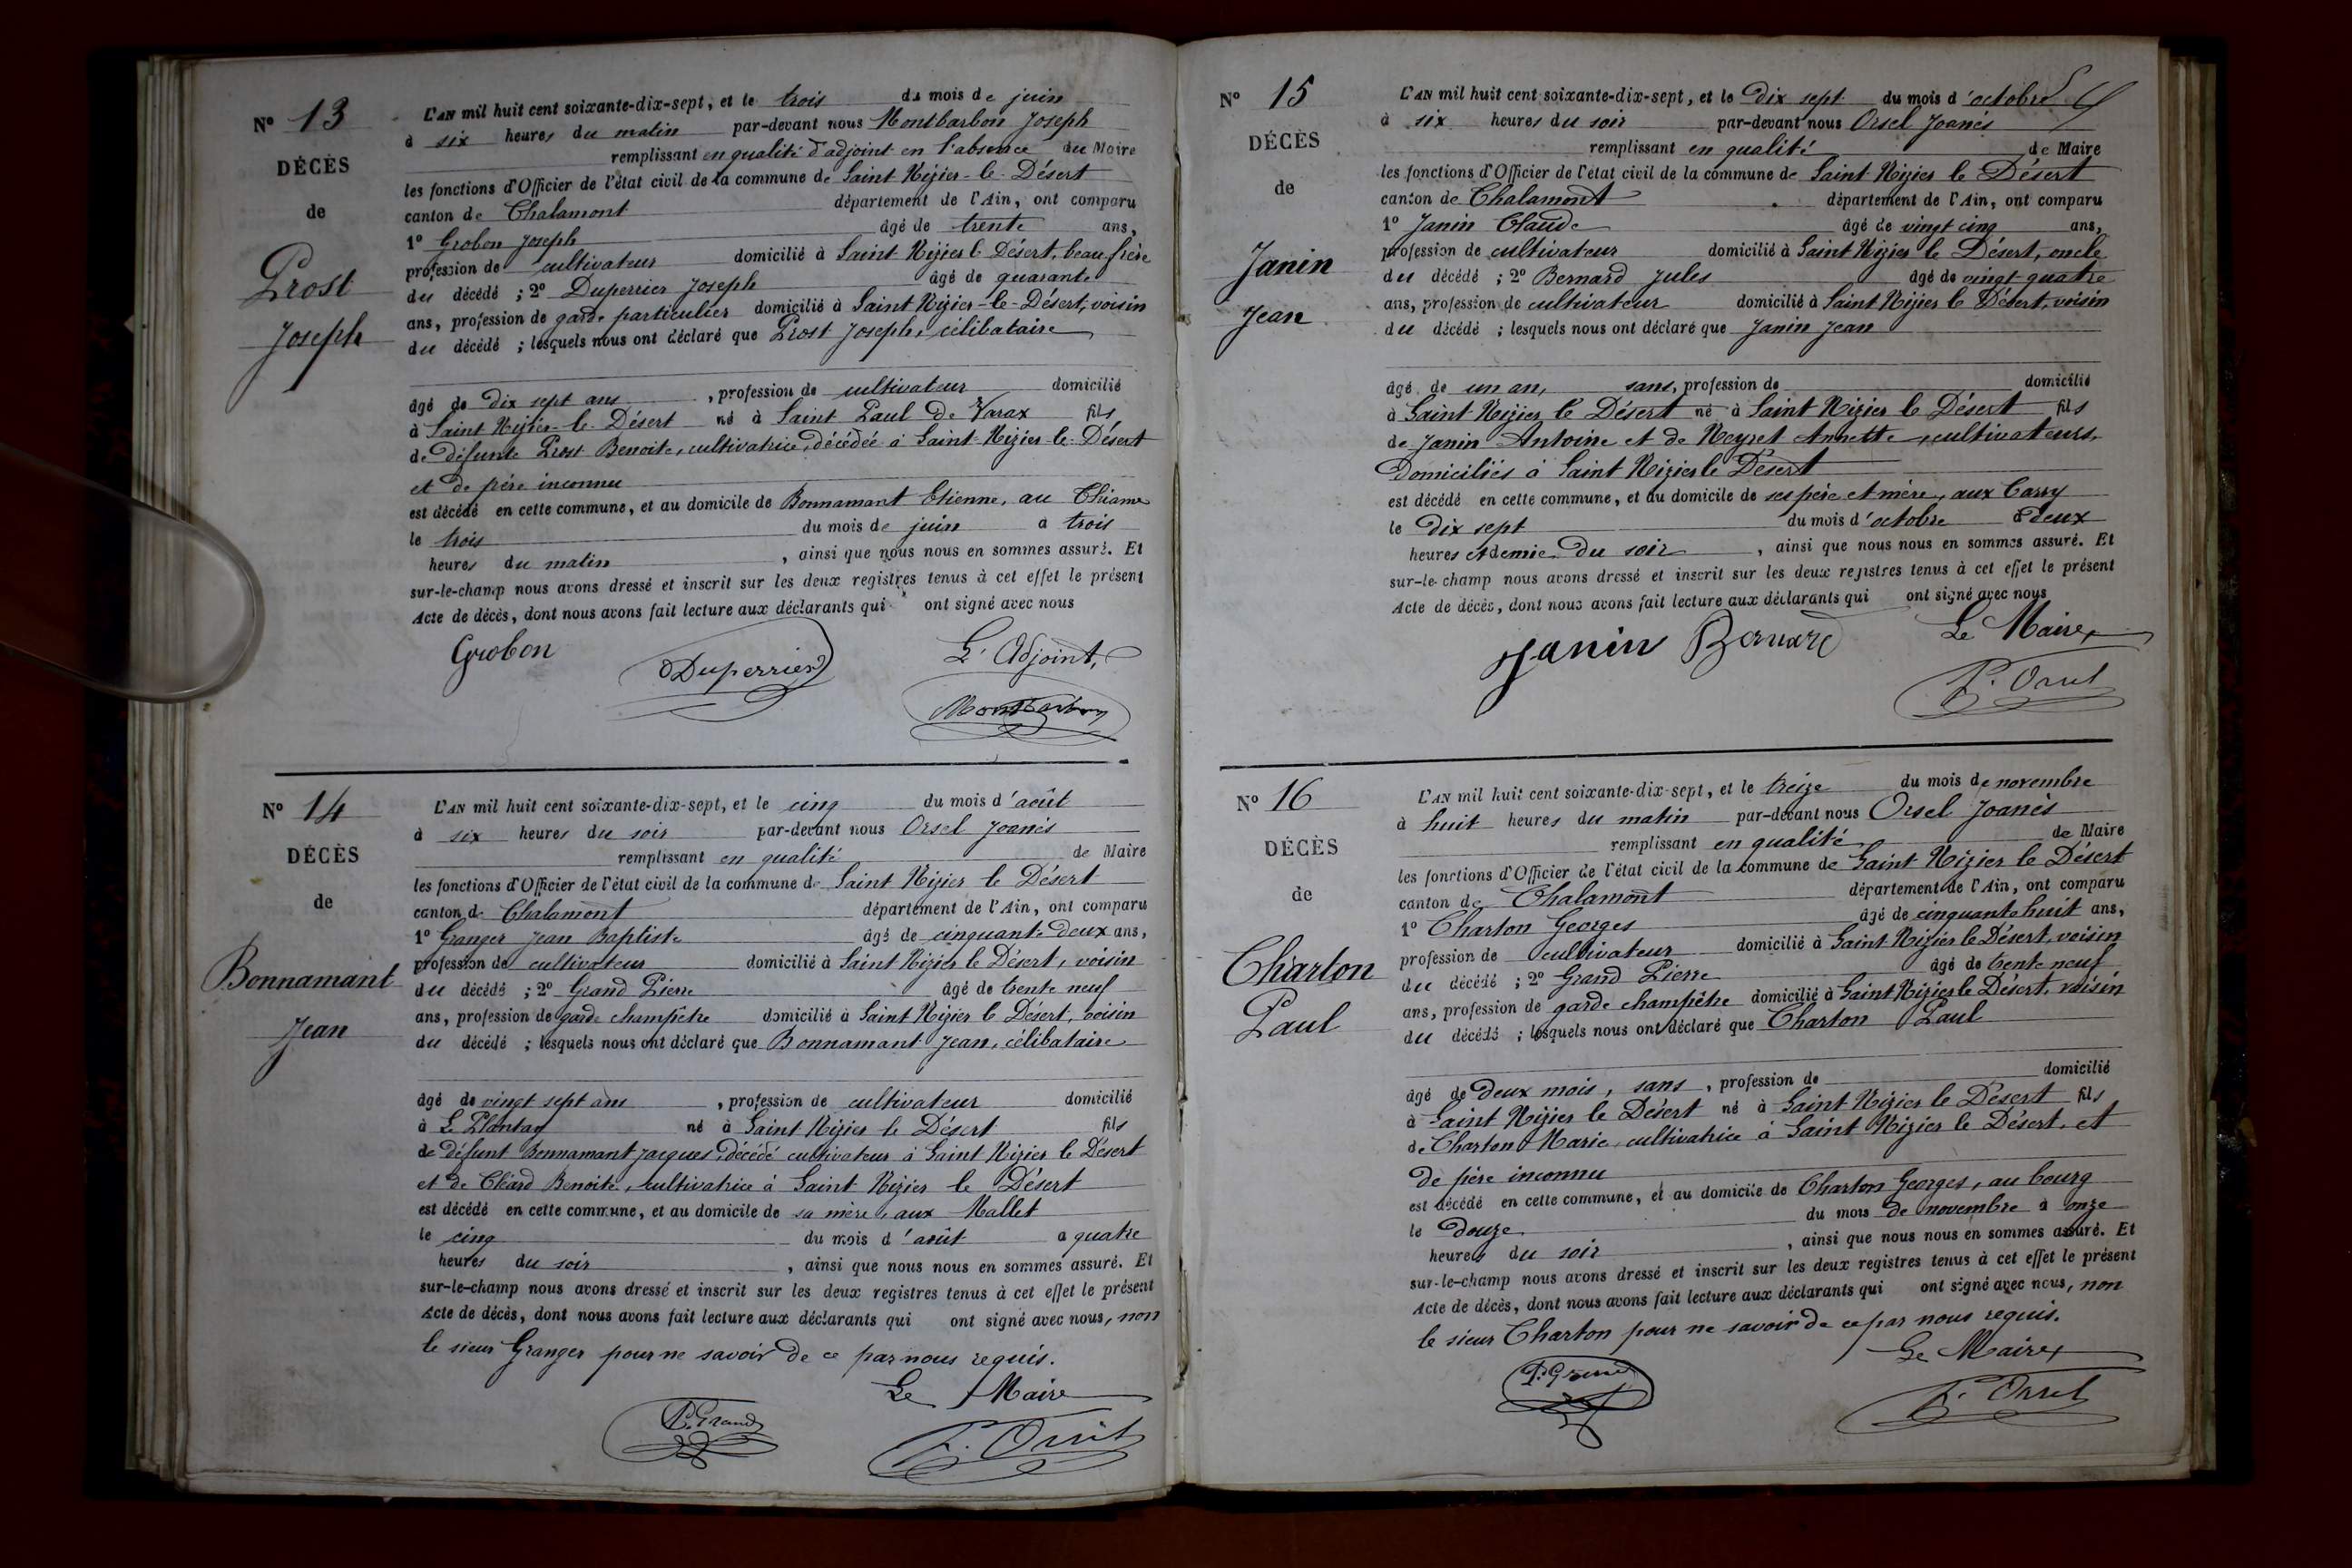 N° 13
DÉCÈS
de
Prost
Joseph
L'AN mil huit cent soixante-dix-sept, et le trois du mois de juin
à six heures du matin par-devant nous Montbarbon Joseph
remplissant en qualité d'adjoint en l'absence du Maire
les fonctions d'Officier de l'état civil de la commune de Saint Nizier-le-Désert
canton de Chalamont département de l'Ain, ont comparu
1° Grobon Joseph âgé de trente ans,
profession de cultivateur domicilié à Saint Nizier le Désert, beau frère
du décédé ; 2° Duperrier Joseph âgé de quarante
ans, profession de garde particulier domicilié à Saint Nizier-le-Désert, voisin
du décédé ; lesquels nous ont déclaré que Prost Joseph, célibataire
âgé de dix sept ans , profession de cultivateur domicilié
à Saint Nizier-le-Désert né à Saint Paul de Varax fils
de défunte Prost Benoite, cultivatrice, décédée à Saint-Nizier-le-Désert
et de père inconnu
est décédé en cette commune, et au domicile de Bonnamant Etienne, au Thiame
le trois du mois de juin à trois
heures du matin , ainsi que nous nous en sommes assuré. Et
sur-le-champ nous avons dressé et inscrit sur les deux registres tenus à cet effet le présent
Acte de décès, dont nous avons fait lecture aux déclarants qui ont signé avec nous
Grobon Duperrier L'Adjoint,
Montbarbon
N° 14
DÉCÈS
de
Bonnamant
Jean
L'AN mil huit cent soixante-dix-sept, et le cinq du mois d'août
à six heures du soir par-devant nous Orsel Joanès
remplissant en qualité de Maire
les fonctions d'Officier de l'état civil de la commune de Saint Nizier le Désert
canton de Chalamont département de l'Ain, ont comparu
1° Granger Jean Baptiste âgé de cinquante deux ans,
profession de cultivateur domicilié à Saint Nizier le Désert, voisin
du décédé ; 2° Grand Pierre âgé de trente neuf
ans, profession de garde champêtre domicilié à Saint Nizier le Désert, voisin
du décédé ; lesquels nous ont déclaré que Bonnamant Jean, célibataire
âgé de vingt sept ans , profession de cultivateur domicilié
à Le Plantay né à Saint Nizier le Désert fils
de défunt Bonnamant Jacques, décédé cultivateur à Saint Nizier le Désert
et de Cléard Benoite, cultivatrice à Saint Nizier le Désert
est décédé en cette commune, et au domicile de sa mère, aux Mallet
le cinq du mois d'août à quatre
heures du soir , ainsi que nous nous en sommes assuré. Et
sur-le-champ nous avons dressé et inscrit sur les deux registres tenus à cet effet le présent
Acte de décès, dont nous avons fait lecture aux déclarants qui ont signé avec nous, non
le sieur Granger pour ne savoir de ce par nous requis.
Le Maire
P. Grand
Orsel
N° 15
DÉCÈS
de
Janin
Jean
L'AN mil huit cent soixante-dix-sept, et le dix sept du mois d'octobre
à six heures du soir par-devant nous Orsel Joanès
remplissant en qualité de Maire
les fonctions d'Officier de l'état civil de la commune de Saint Nizier le Désert
canton de Chalamont département de l'Ain, ont comparu
1° Janin Claude âgé de vingt cinq ans,
profession de cultivateur domicilié à Saint Nizier le Désert, oncle
du décédé ; 2° Bernard Jules âgé de vingt quatre
ans, profession de cultivateur domicilié à Saint Nizier le Désert, voisin
du décédé ; lesquels nous ont déclaré que Janin Jean
âgé de un an, sans, profession de domicilié
à Saint Nizier le Désert né à Saint Nizier le Désert fils
de Janin Antoine et de Neyret Annette, cultivateurs,
domiciliés à Saint Nizier le Désert
est décédé en cette commune, et au domicile de ses père et mère, aux Carry
le dix sept du mois d'octobre à deux
heures et demie du soir , ainsi que nous nous en sommes assuré. Et
sur-le-champ nous avons dressé et inscrit sur les deux registres tenus à cet effet le présent
Acte de décès, dont nous avons fait lecture aux déclarants qui ont signé avec nous
Janin Bernard Le Maire,
Orsel
N° 16
DÉCÈS
de
Charton
Paul
L'AN mil huit cent soixante-dix-sept, et le treize du mois de novembre
à huit heures du matin par-devant nous Orsel Joanès
remplissant en qualité de Maire
les fonctions d'Officier de l'état civil de la commune de Saint Nizier le Désert
canton de Chalamont département de l'Ain, ont comparu
1° Charton Georges âgé de cinquante huit ans,
profession de cultivateur domicilié à Saint Nizier le Désert, voisin
du décédé ; 2° Grand Pierre âgé de trente neuf
ans, profession de garde champêtre domicilié à Saint Nizier le Désert, voisin
du décédé ; lesquels nous ont déclaré que Charton Paul
âgé de deux mois, sans , profession de domicilié
à Saint Nizier le Désert né à Saint Nizier le Désert fils
de Charton Marie, cultivatrice à Saint Nizier le Désert, et
de père inconnu
est décédé en cette commune, et au domicile de Charton Georges, au bourg
le douze du mois de novembre à onze
heures du soir , ainsi que nous nous en sommes assuré. Et
sur-le-champ nous avons dressé et inscrit sur les deux registres tenus à cet effet le présent
Acte de décès, dont nous avons fait lecture aux déclarants qui ont signé avec nous, non
le sieur Charton pour ne savoir de ce par nous requis.
Le Maire,
P. Grand
Orsel